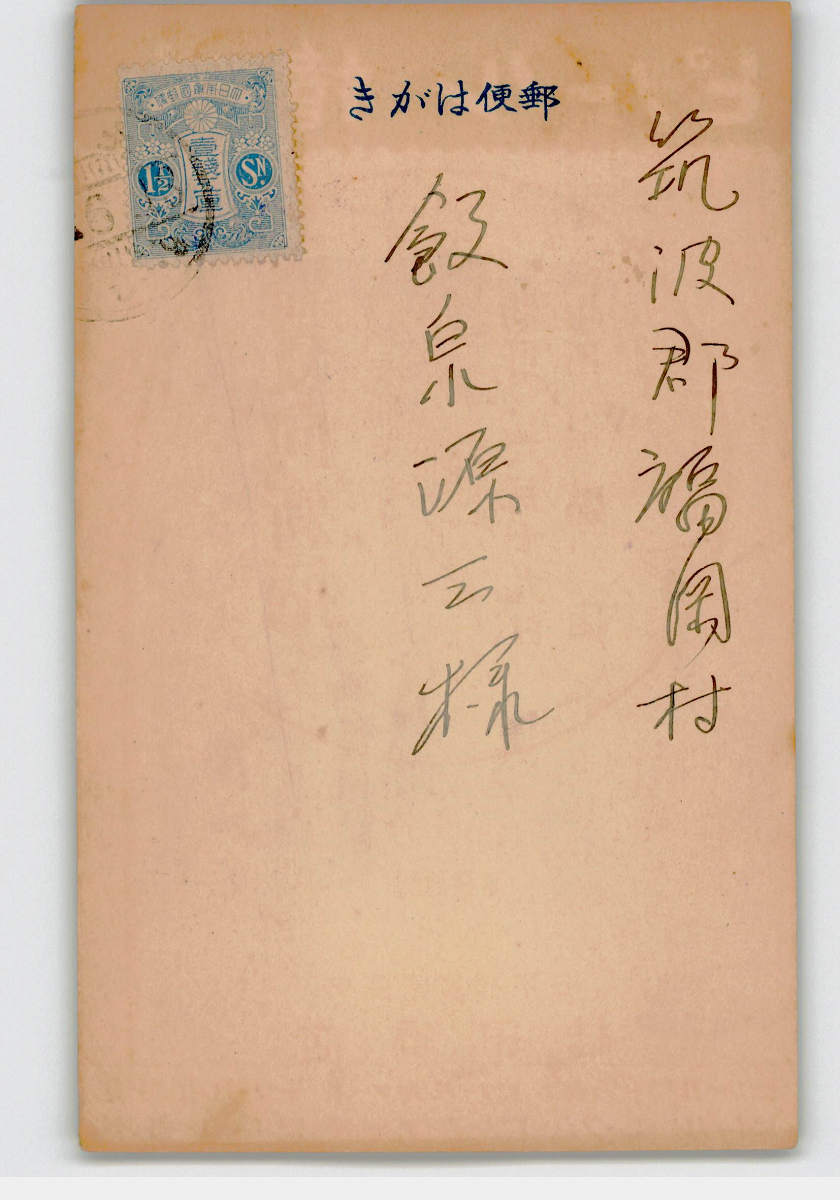 きがは便郵
大日本帝國郵便
壹錢五厘
1½
Sɴ
筑波郡福岡村
飯泉源三様